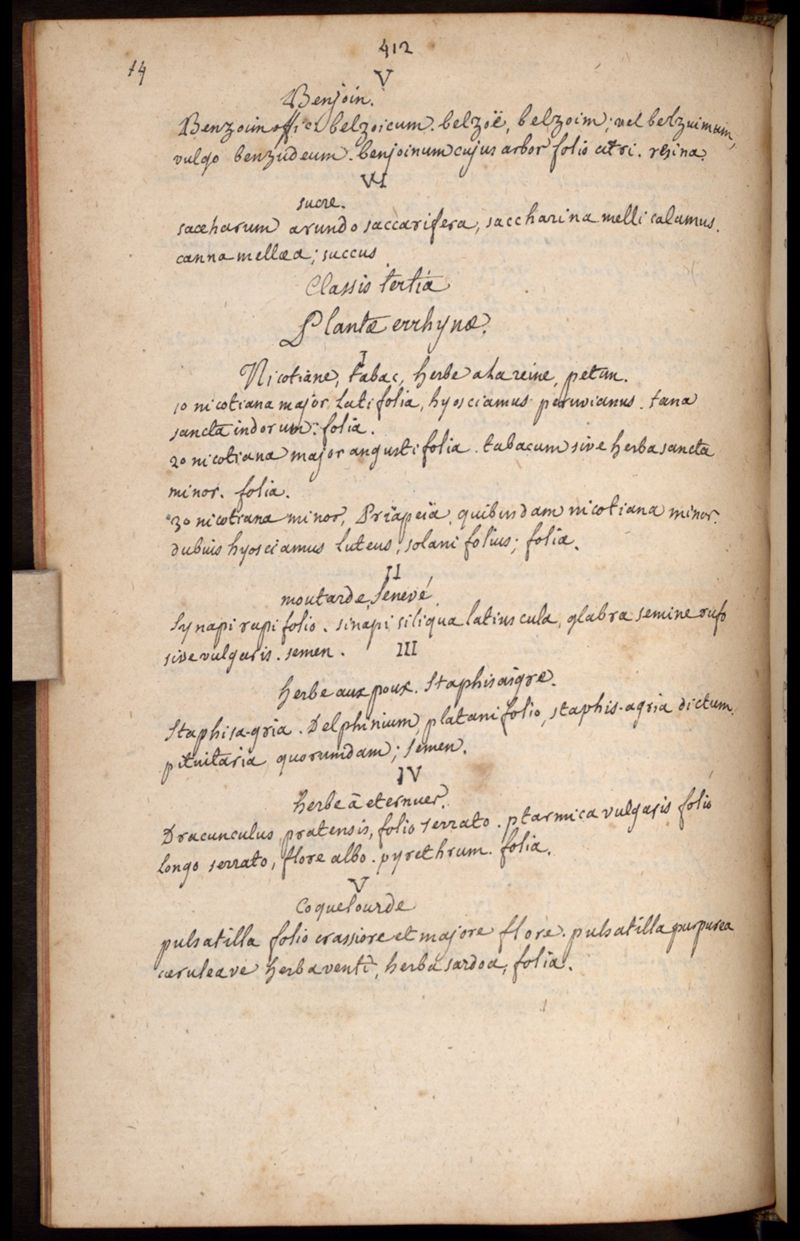 412
14
V
Benjoin.
Benzoim offici belzoicum. belzoë, belzoim; vel belzuimum,
vulgo benzudeum. benjoinum cujus arbor folio citri. resina.
VI
sucre.
saccharum arundo saccarifera, saccharina melli calamus.
canna mellæa; succus.
Classis tertia
Plantæ errhynæ.
I
Nicotiane, tabac, herbe a la reine, petun.
1o nicotiana major latifolia, hyosciamus peruvianus. tana
sancta indorum: folia.
2o nicotiana major angustifolia. tabacum sive herba sancta
minor. folia.
3o nicotiana minor, Priapeia, quibusdam nicotiana minor.
dubius hyosciamus luteus; solani folius; folia.
II
moutarde, Senevé.
Synapi rapi folio. sinapi siliqua latiuscula, glabra semine rufo
sive vulgaris. semen.
III
herbe aux poux. Staphisaigre.
Staphisa-gria. Delphinium, platani folio, staphis-agria dictum.
pituitaria quorumdam; semen.
IV
herbe à eternuer.
Dracunculus pratensis, folio serrato. ptarmica vulgaris folio
longo serrato, flore albo. pyrethrum. folia.
V
Coquelourde
pulsatilla folio crassiore et majore flore. pulsatilla purpurea
cæruleave herba venti, herba sardoa, folia.